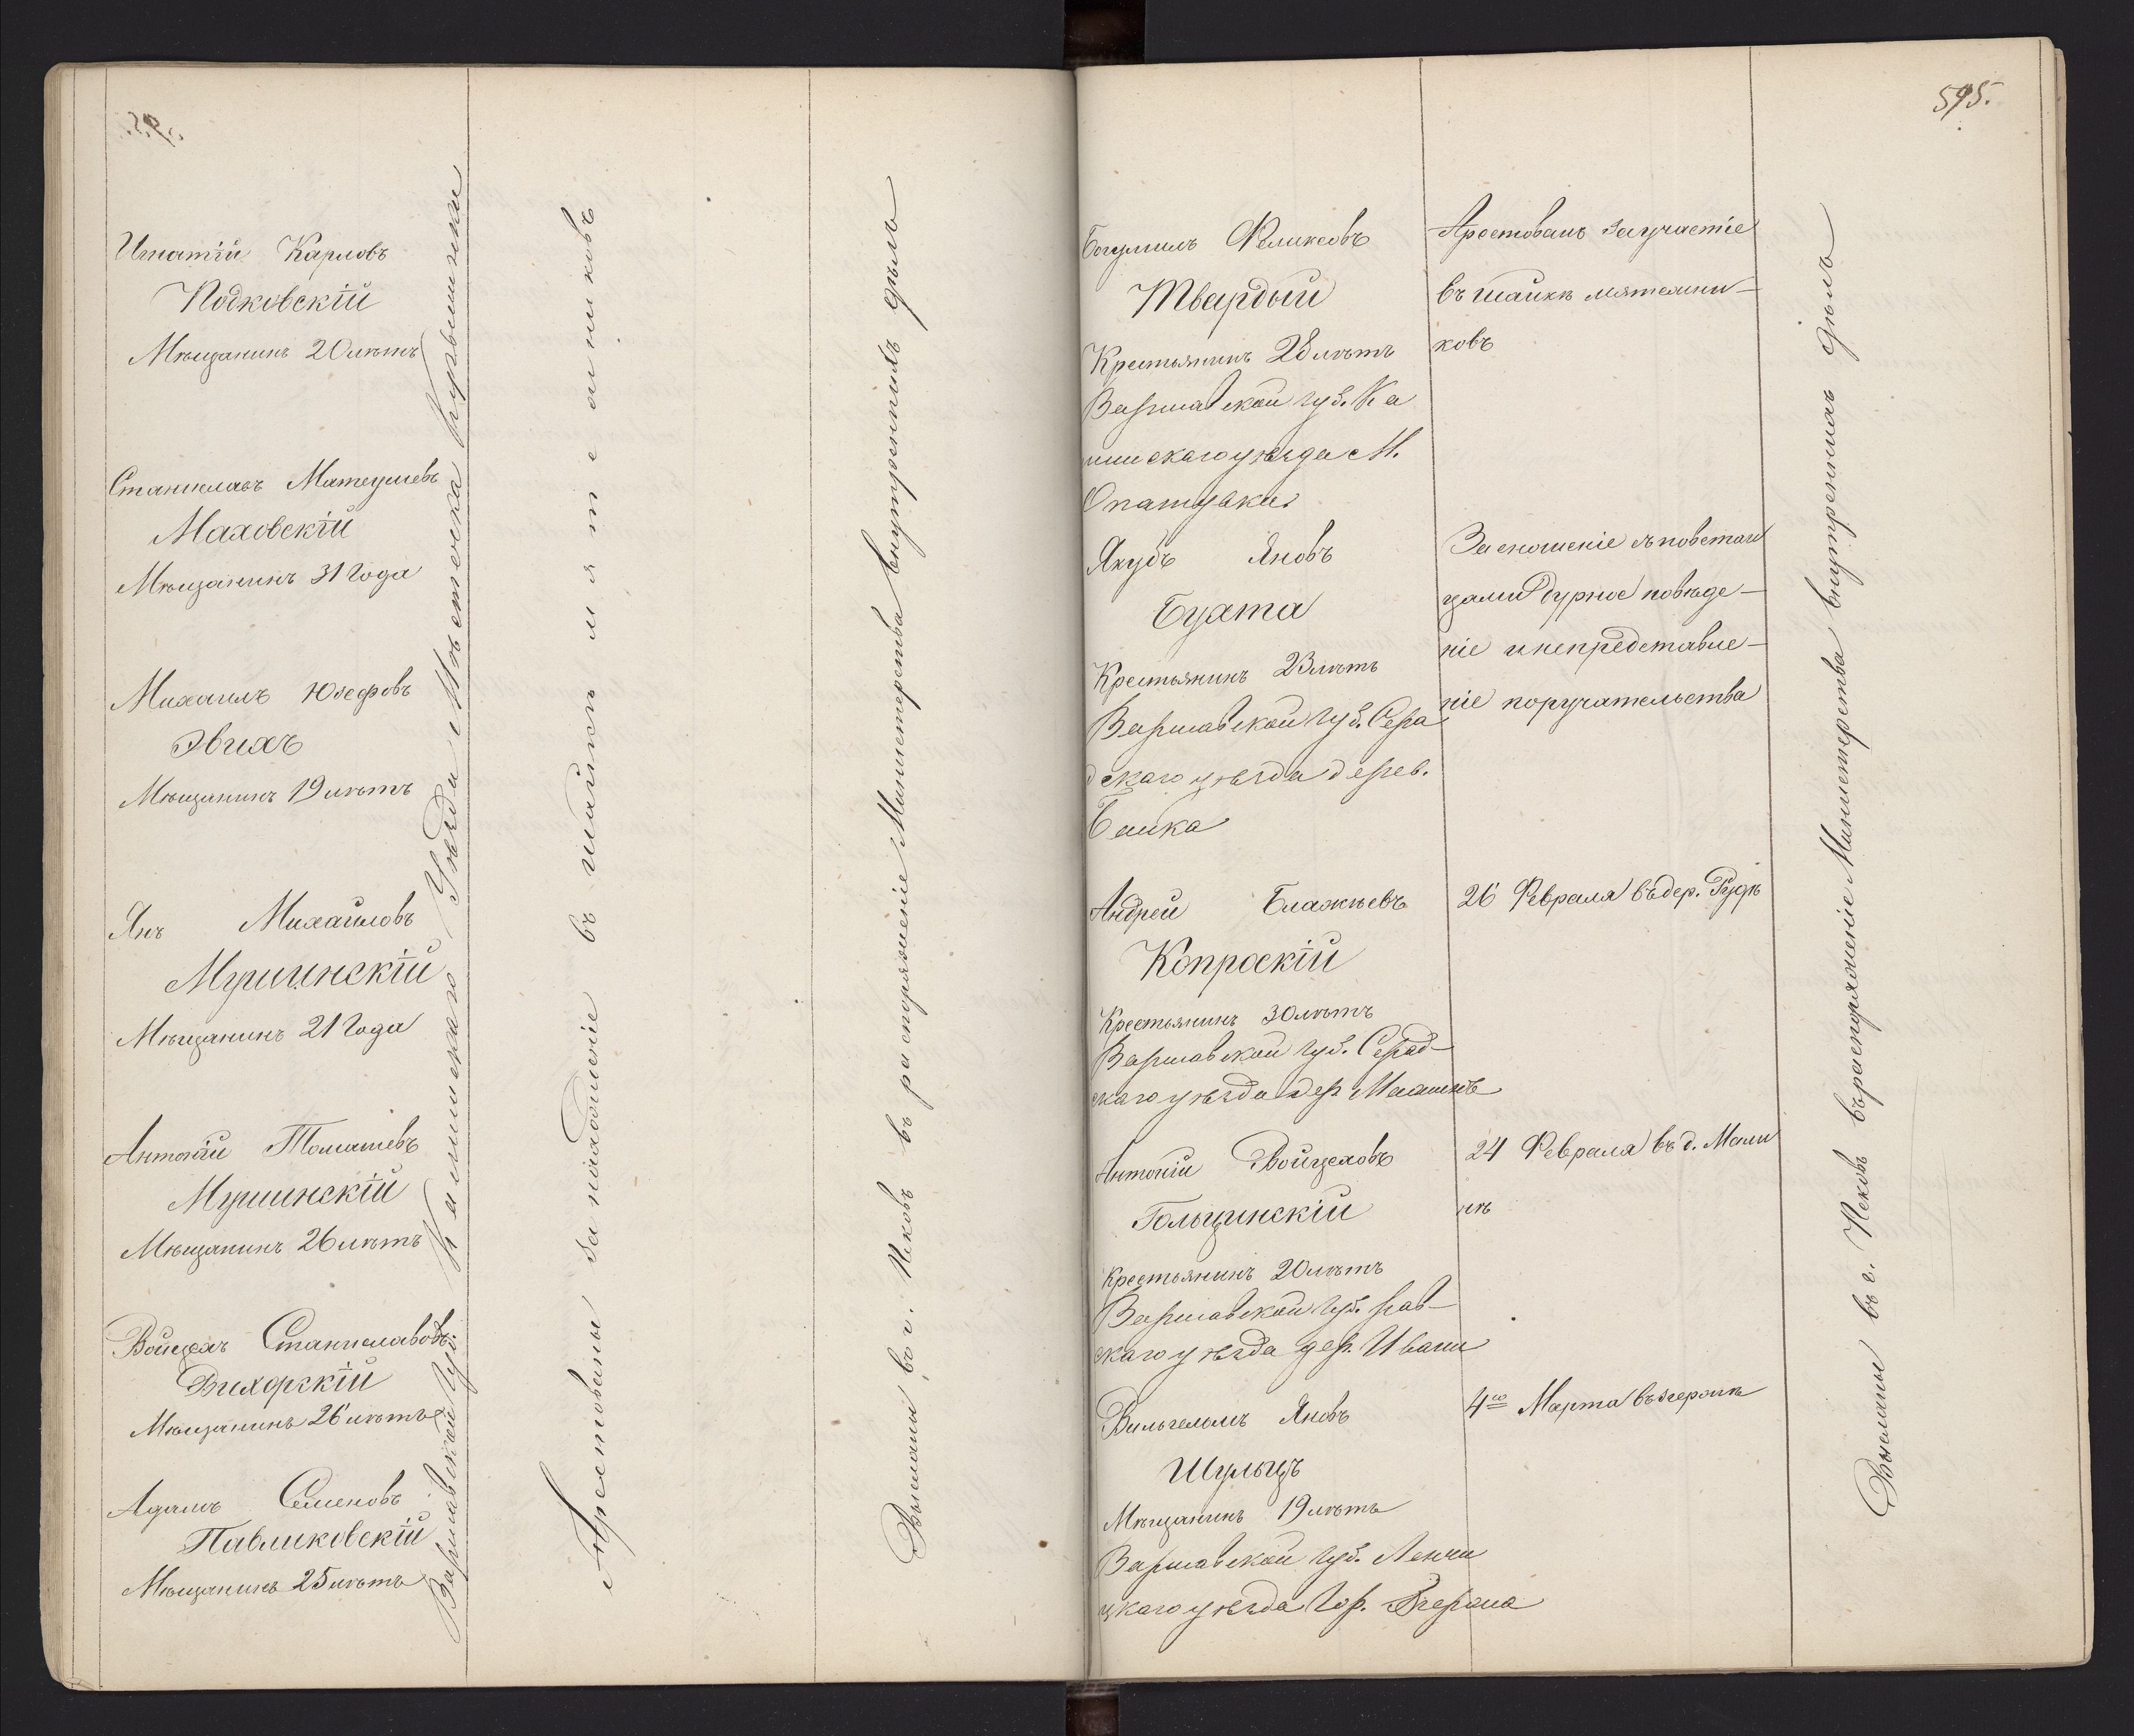 Игнатій Карловъ
Подковскій
Мѣщанинъ 20 лѣтъ
Станиславъ Матеушевъ
Маховскій
Мѣщанинъ 31 года
Михаилъ Юзефовъ
Эвихъ
Мѣщанинъ 19 лѣтъ
Янъ Михайловъ
Мушинскій
Мѣщанинъ 21 года
Антоній Томашевъ
Мушинскій
Мѣщанинъ 26 лѣтъ
Войцехъ Станиславовъ
Вихорскій
Мѣщанинъ 26 лѣтъ
Адамъ Семеновъ
Павликовскій
Мѣщанинъ 25 лѣтъ
Варшавской Губ.
Калишскаго Уѣзда Мѣстечка
Арестованы за нападеніе въ шайкѣ мятежниковъ
Высланы въ г. Псковъ въ распоряженіе Министерства внутреннихъ дѣлъ
595.
Богумилъ Феликсовъ
Твардый
Крестьянинъ 28 лѣтъ
Варшавской губ. Ка
лишскаго уѣзда М.
Опатувка
Арестованъ за участіе
въ шайкѣ мятежни-
ковъ
Якубъ Яновъ
Бухта
Крестьянинъ 23 лѣтъ
Варшавской губ. Сера
дскаго уѣзда дерев.
За сношеніе съ повстан
цами дурное поведе-
ніе и непредставле-
ніе поручательства
Андрей Блажѣевъ
Копроскій
Крестьянинъ 30 лѣтъ
Варшавской губ. Серад-
скаго уѣзда дер.
26 Февраля въ дер. Рудѣ
Антоній Войцеховъ
Гольщинскій
Крестьянинъ 20 лѣтъ
Варшавской губ. Рав-
скаго уѣзда дер. Ивани
24 Февраля въ д. Мали
нѣ
Вильгельмъ Яновъ
Шульцъ
Мѣщанинъ 19 лѣтъ
Варшавской губ. Ленчи
цкаго уѣзда гор. Згержа
4го Марта въ Згержѣ
Высланы въ г. Псковъ въ распоряженіе Министерства внутреннихъ дѣлъ